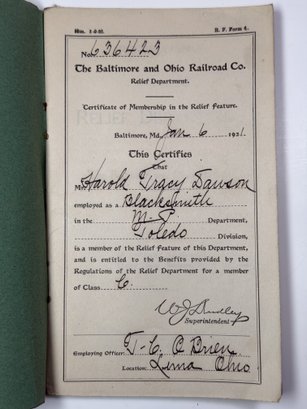 R. F. Form 4.
No. 636423
The Baltimore and Ohio Railroad Co.
Relief Department.
Certificate of Membership in the Relief Feature.
Baltimore, Md. Jan 6 1921.
This Certifies
that
Mr. Harold Tracy Dawson
employed as a Blacksmith
in the M. P. Department,
Toledo Division,
is a member of the Relief Feature of this Department, and
is entitled to the Benefits provided by the
Regulations of the Relief Department for a member
of Class C.
W J Dudley
Superintendent
Employing Officer: T-C O Brien
Location: Lima Ohio